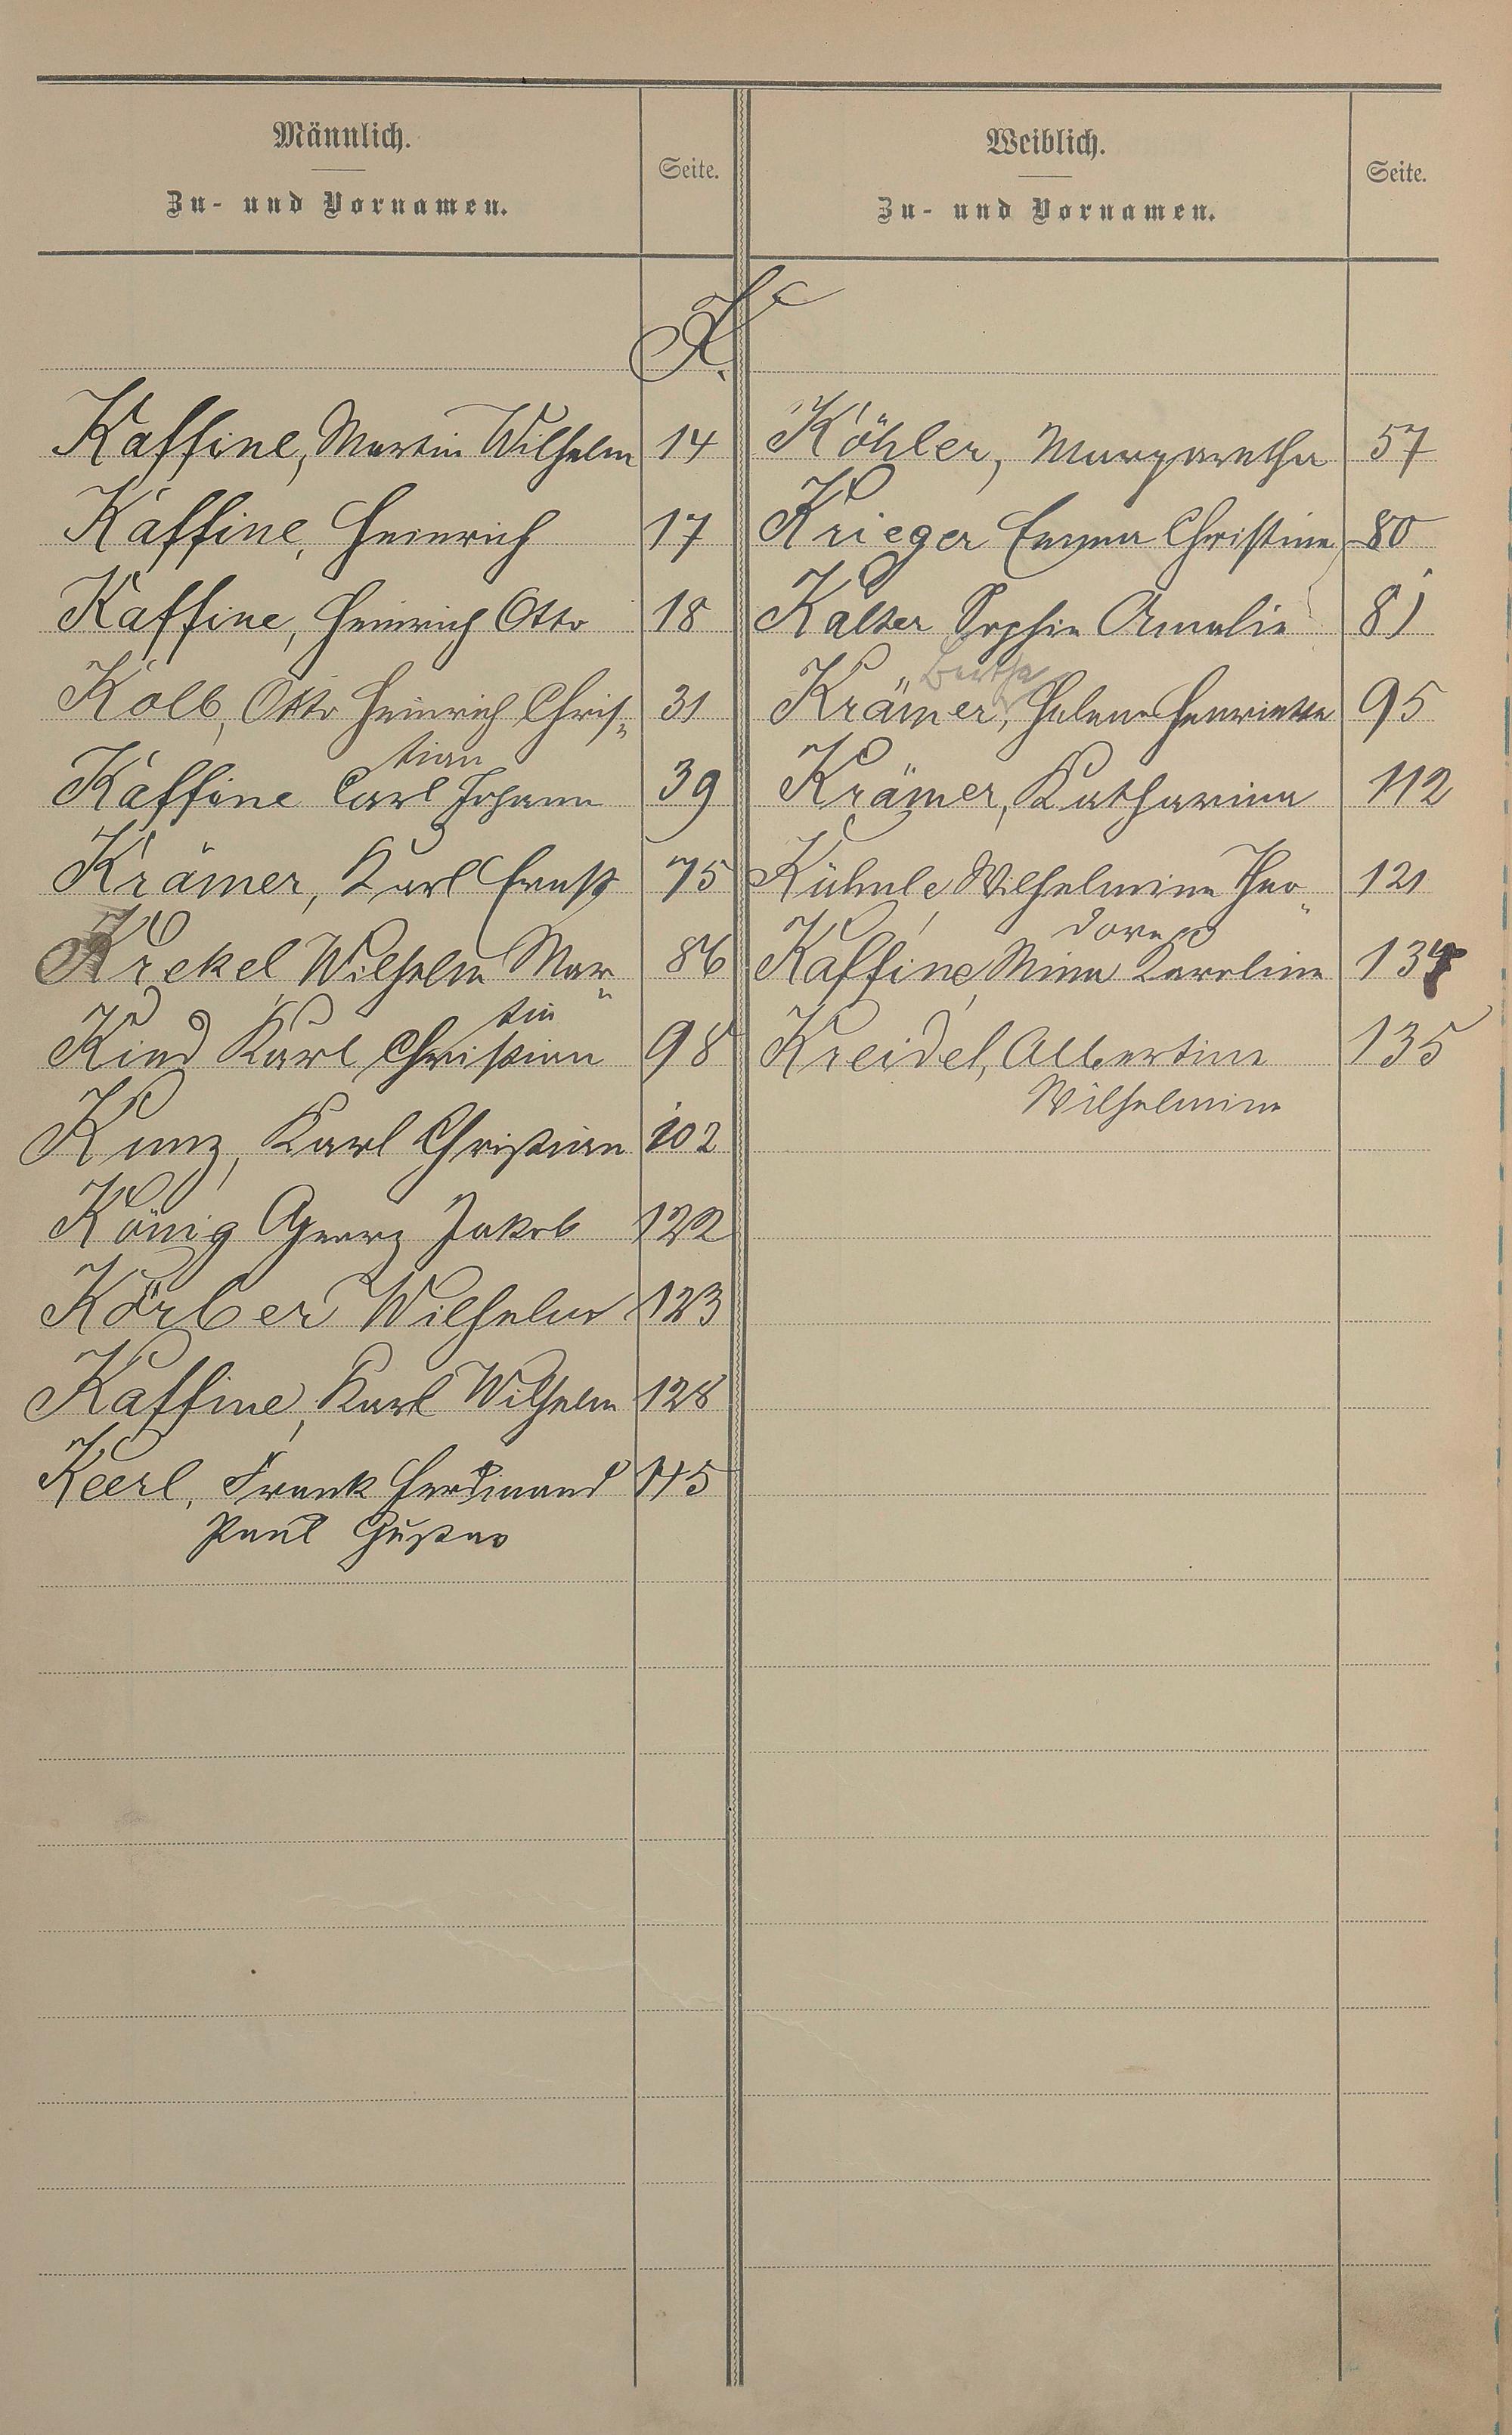 Männlich.
Zu- und Vornamen.
Seite.
Weiblich.
Zu- und Vornamen.
Seite.
K.
Kaffine, Martin Wilhelm 14
Kaffine, Heinrich 17
Kaffine, Heinrich Otto 18
Kolb, Otto Heinrich Chris-
tian 31
Kaffine Carl Johann 39
Krämer, Karl Ernst 75
Krekel Wilhelm Mar-
tin 86
Kind Karl Christian 98
Kunz, Karl Christian 102
König Georg Jakob 122
Körber Wilhelm 123
Kaffine, Karl Wilhelm 128
Keerl, Frank Ferdinand 145
Paul Gustav
Köhler, Margaretha 57
Krieger Emma Christine 80
Kalter Sophie Amalie 81
Bertha
Krämer, Helene Henriette 95
Krämer, Katharina 112
Kühnle, Wilhelmine Theo-
dore 121
Kaffine, Mina Karoline 134
Kreidel, Albertine 135
Wilhelmine